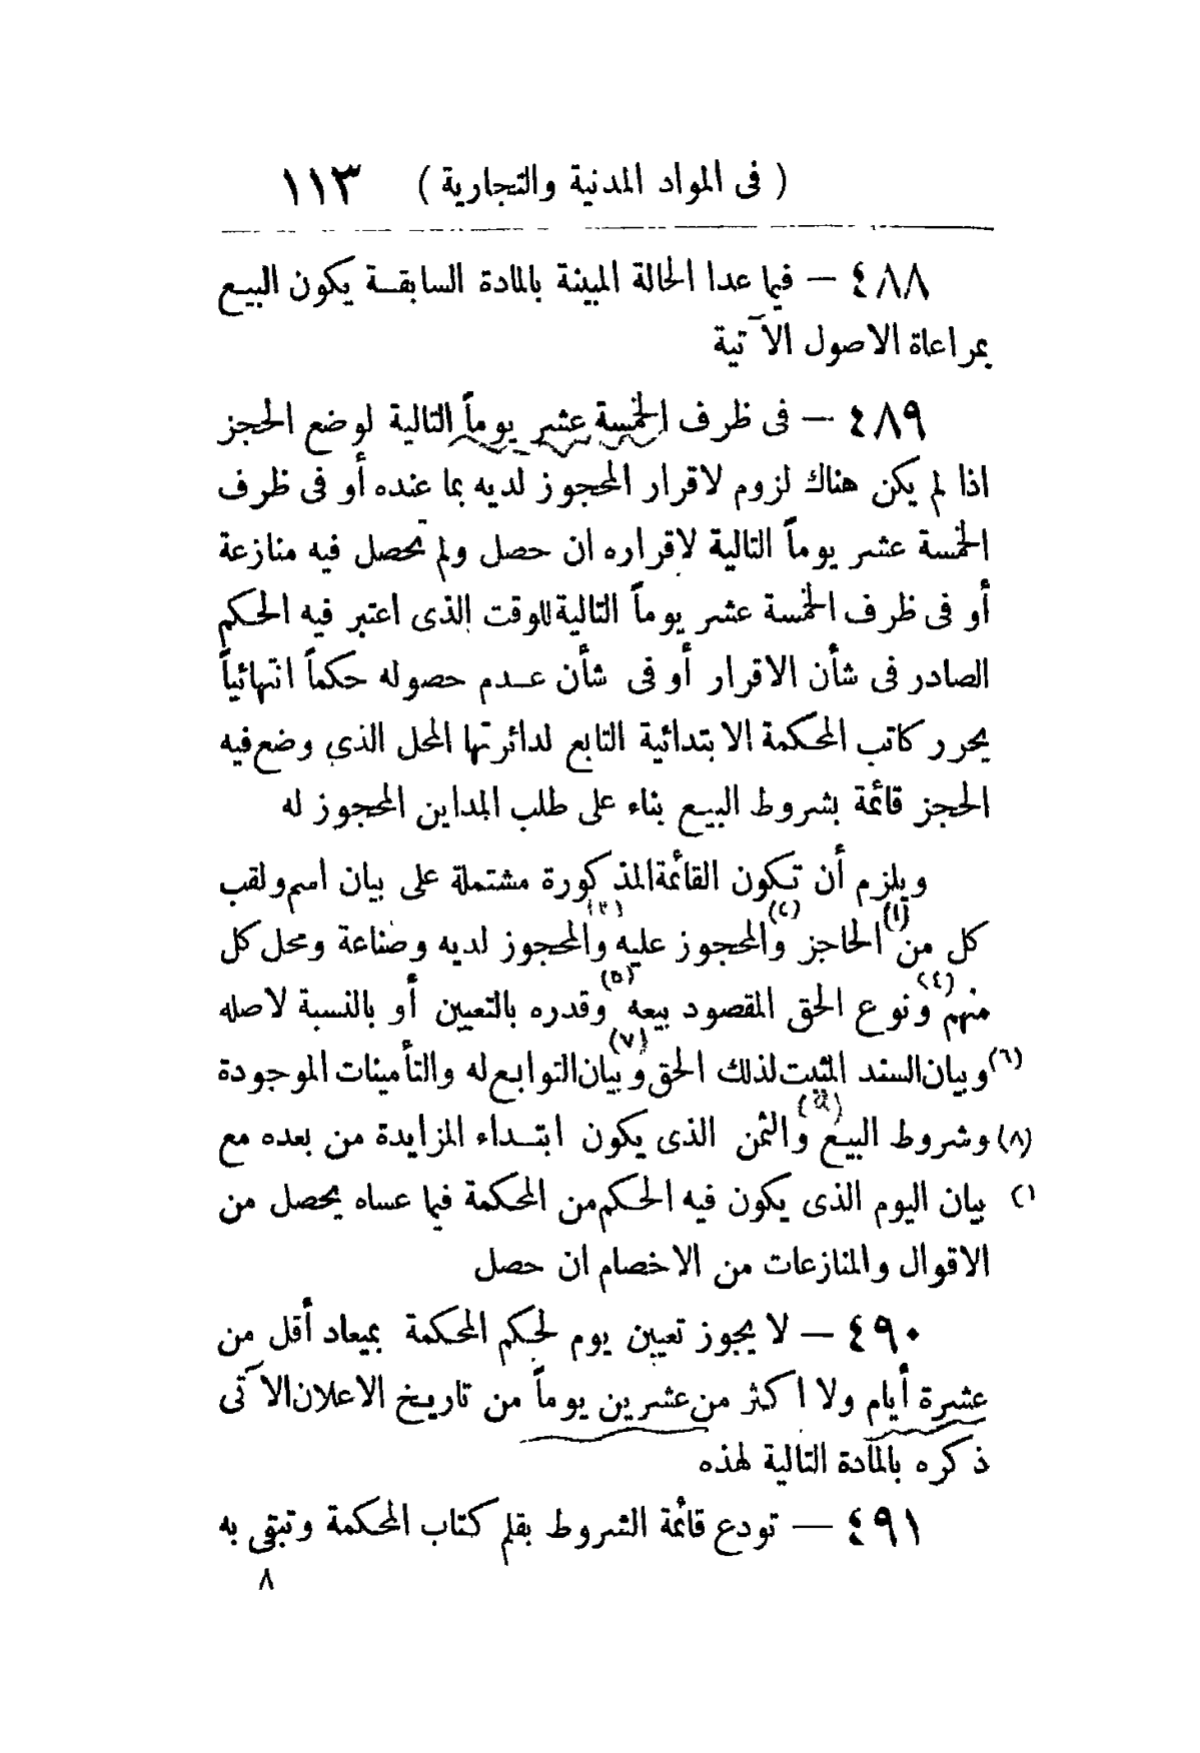 ( فى المواد المدنية والتجارية ) ١١٣
٤٨٨ — فيما عدا الحالة المبينة بالمادة السابقة يكون البيع
بمراعاة الاصول الآتية
٤٨٩ — فى ظرف الخمسة عشر يوماً التالية لوضع الحجز
اذا لم يكن هناك لزوم لاقرار المحجوز لديه بما عنده أو فى ظرف
الخمسة عشر يوماً التالية لاقراره ان حصل ولم تحصل فيه منازعة
أو فى ظرف الخمسة عشر يوماً التالية للوقت الذى اعتبر فيه الحكم
الصادر فى شأن الاقرار أو فى شأن عدم حصوله حكماً انتهائياً
يحرر كاتب المحكمة الابتدائية التابع لدائرتها المحل الذى وضع فيه
الحجز قائمة بشروط البيع بناء على طلب المداين المحجوز له
ويلزم أن تكون القائمة المذكورة مشتملة على بيان اسم ولقب
(١) (٢) (٣)
كل من الحاجز والمحجوز عليه والمحجوز لديه وصناعة ومحل كل
(٤) (٥)
منهم ونوع الحق المقصود بيعه وقدره بالتعيين أو بالنسبة لاصله
(٧)
(٦) وبيان السند المثبت لذلك الحق وبيان التوابع له والتأمينات الموجودة
(٨) وشروط البيع والثمن الذى يكون ابتداء المزايدة من بعده مع
بيان اليوم الذى يكون فيه الحكم من المحكمة فيما عساه يحصل من
الاقوال والمنازعات من الاخصام ان حصل
٤٩٠ — لا يجوز تعيين يوم لحكم المحكمة بميعاد أقل من
عشرة أيام ولا اكثر من عشرين يوماً من تاريخ الاعلان الآتى
ذكره بالمادة التالية لهذه
٤٩١ — تودع قائمة الشروط بقلم كتاب المحكمة وتبقى به
٨